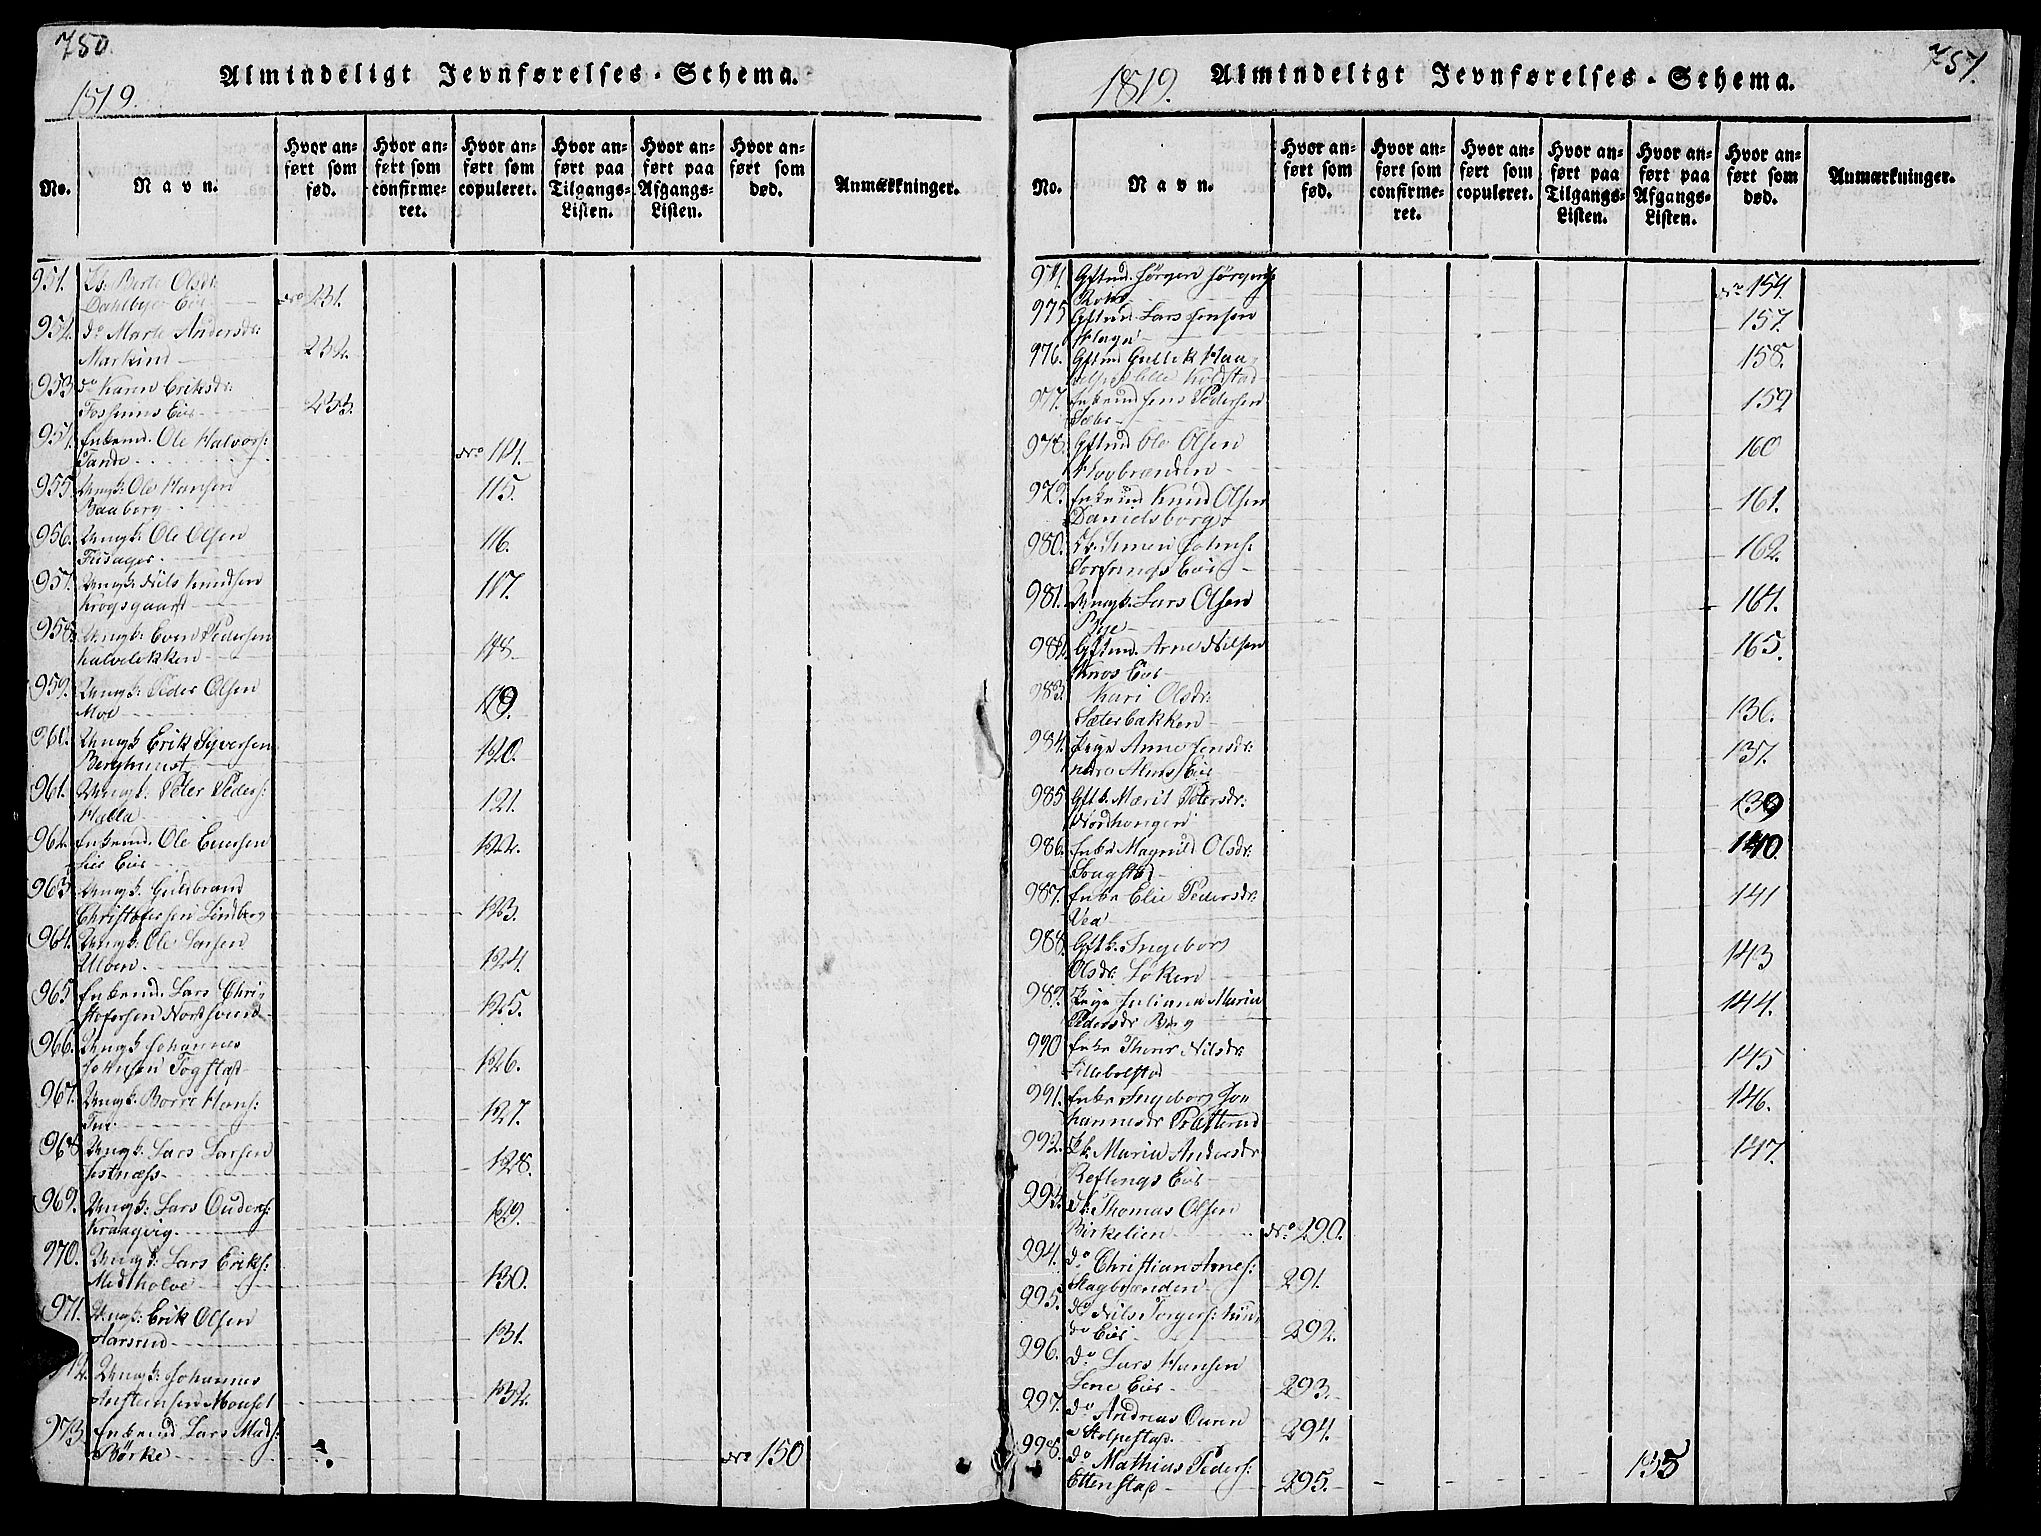 750.
Almindeligt Jevnførelses-Schema.
1819.
No.
Navn.
Hvor anført som fød.
Hvor anført som confirmeret.
Hvor anført som copuleret.
Hvor anført paa Tilgangs-Listen.
Hvor anført paa Afgangs-Listen.
Hvor anført som død.
Anmærkninger.
951. Berte Olsdr:
Dahlbye Eie No 231.
952. do Marte Andersdr:
Markind 232.
953 do Karen Eriksdr:
Fossums Eie 233.
954. Enkemd. Ole Halvors:
Tande No 114.
955. Ungk: Ole Hansen
Baaberg 115.
956. Ungk: Ole Olsen
Fusager 116.
957. Ungk: Nils Knudsen
Krogsgaard 117.
958. Ungk: Even Pedersen
Kalvelekken 118.
959. Ungk: Peder Olsen
Moe 119.
960. Ungk Erik Syversen
Berghuust 120.
961. Ungk. Peter Peders:
Halla 121.
962. Enkemd. Ole Enersen
Lie Eie 122.
963. Ungk. Gudbrand
Christofersen Lindberg 123.
964. Ungk: Ole Larsen
Ulven 124.
965 Enkemd. Lars Chri-
stofersen Nordsveen 125.
966. Ungk Johannes
Johnsen Fogstad 126.
967. Ungk. Borre Hans:
Tui 127.
968 Ungk. Lars Larsen
Estnæss 128.
969. Ungk: Lars Guders:
Kraagvig 129.
970. Ungk: Lars Eriks:
Midtholve 130.
971. Ungk: Erik Olsen
Harsrud 131.
972. Ungk: Johannes
Austensen Mousel 132.
973 Enkemd Lars Mads:
Børke No 150
751.
Almindeligt Jevnførelses-Schema.
1819.
No.
Navn.
Hvor anført som fød.
Hvor anført som confirmeret.
Hvor anført som copuleret.
Hvor anført paa Tilgangs-Listen.
Hvor anført paa Afgangs-Listen.
Hvor anført som død.
Anmærkninger.
974. Gftmd. Jørgen Jørgens
No 154.
975 Gftmd. Lars Jensen
Hage 157.
976. Gftmd Gullik Haa-
Lille Kolstad 158.
977. Enkemd Jens Pedersen
Sæter 159
978. Gftmd Ole Olsen
Hovbrænden 160
979. Enkemd Knud Olsen
Danielsborg 161.
980. Simen Johns:
Eie 162.
981. Ungk. Lars Olsen
Bye 164.
982. Gftmd. Arne Nilsen
Knos Eie 165.
983. Kari Olsdr:
Sæterbakken 136.
984. Pige Anne Jensdr:
nedre Alms Eie 137.
985 Gftk. Marit Peersdr:
Nordhongen 139
986. Enke Magnild Olsdr:
Fougstad 140.
987. Enke Elie Pedersdr:
Vea 141
988. Gftk. Ingeborg
Olsdr: Løken 143
989. Pige Juliana Maria
Pedersdr Berg 144.
990 Enke Thore Nilsdr:
Lillebolstad 145
991. Enke Ingeborg Jo-
hannesdr Pletterud 146.
992. Maria Andersdr
Roflengs Eie 147.
993. Thomas Olsen
Birkelien No 290.
994. do Christian Arnes:
Hagbrænden 291.
995. do Nils Torgers:
Eie 292.
996. do Lars Hansen
Lene Eie 293.
997. do Andreas Ouren
Stolpestad 294.
998. do Mathias Peders:
Ettenstad 295. 135